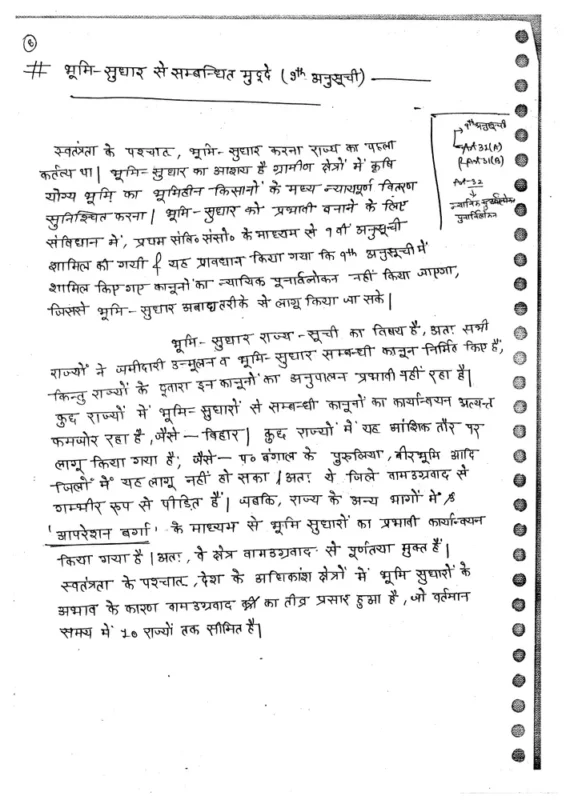 6
# भूमि-सुधार से सम्बन्धित मुद्दे (9th अनुसूची)
9th अनुसूची
Art 31(A)
Art 31(B)
Art-32
न्यायिक
पुनर्विलोकन
स्वतंत्रता के पश्चात, भूमि-सुधार करना राज्य का पहला
कर्तव्य था| भूमि-सुधार का आशय है ग्रामीण क्षेत्रों में कृषि
योग्य भूमि का भूमिहीन किसानों के मध्य न्यायपूर्ण वितरण
सुनिश्चित करना| भूमि-सुधार को प्रभावी बनाने के लिए
संविधान में, प्रथम संवि० संसो० के माध्यम से 9 वीं अनुसूची
शामिल की गयी & यह प्रावधान किया गया कि 9th अनुसूची में
शामिल किए गए कानूनों का न्यायिक पुनार्वलोकन नहीं किया जाएगा,
जिससे भूमि-सुधार अबाध तरीके से लागू किया जा सके|
भूमि-सुधार राज्य-सूची का विषय है, अतः सभी
राज्यों ने जमींदारी उन्मूलन व भूमि-सुधार सम्बन्धी कानून निर्मित किए हैं,
किन्तु राज्यों के द्वारा इन कानूनों का अनुपालन प्रभावी नहीं रहा है|
कुछ राज्यों में भूमि-सुधारों से सम्बन्धी कानूनों का कार्यान्वयन अत्यन्त
कमजोर रहा है, जैसे – बिहार| कुछ राज्यों में यह आंशिक तौर पर
लागू किया गया है; जैसे – प० बंगाल के पुरुलिया, वीरभूमि आदि
जिलों में यह लागू नहीं हो सका| अतः ये जिले वामउग्रवाद से
गम्भीर रूप से पीड़ित हैं| जबकि, राज्य के अन्य भागों में
'आपरेशन बर्गा' के माध्यम से भूमि सुधारों का प्रभावी कार्यान्वयन
किया गया है| अतः, वे क्षेत्र वामउग्रवाद से पूर्णतया मुक्त हैं|
स्वतंत्रता के पश्चात, देश के अधिकांश क्षेत्रों में भूमि सुधारों के
अभाव के कारण वामउग्रवाद का तीव्र प्रसार हुआ है, जो वर्तमान
समय में 10 राज्यों तक सीमित है|